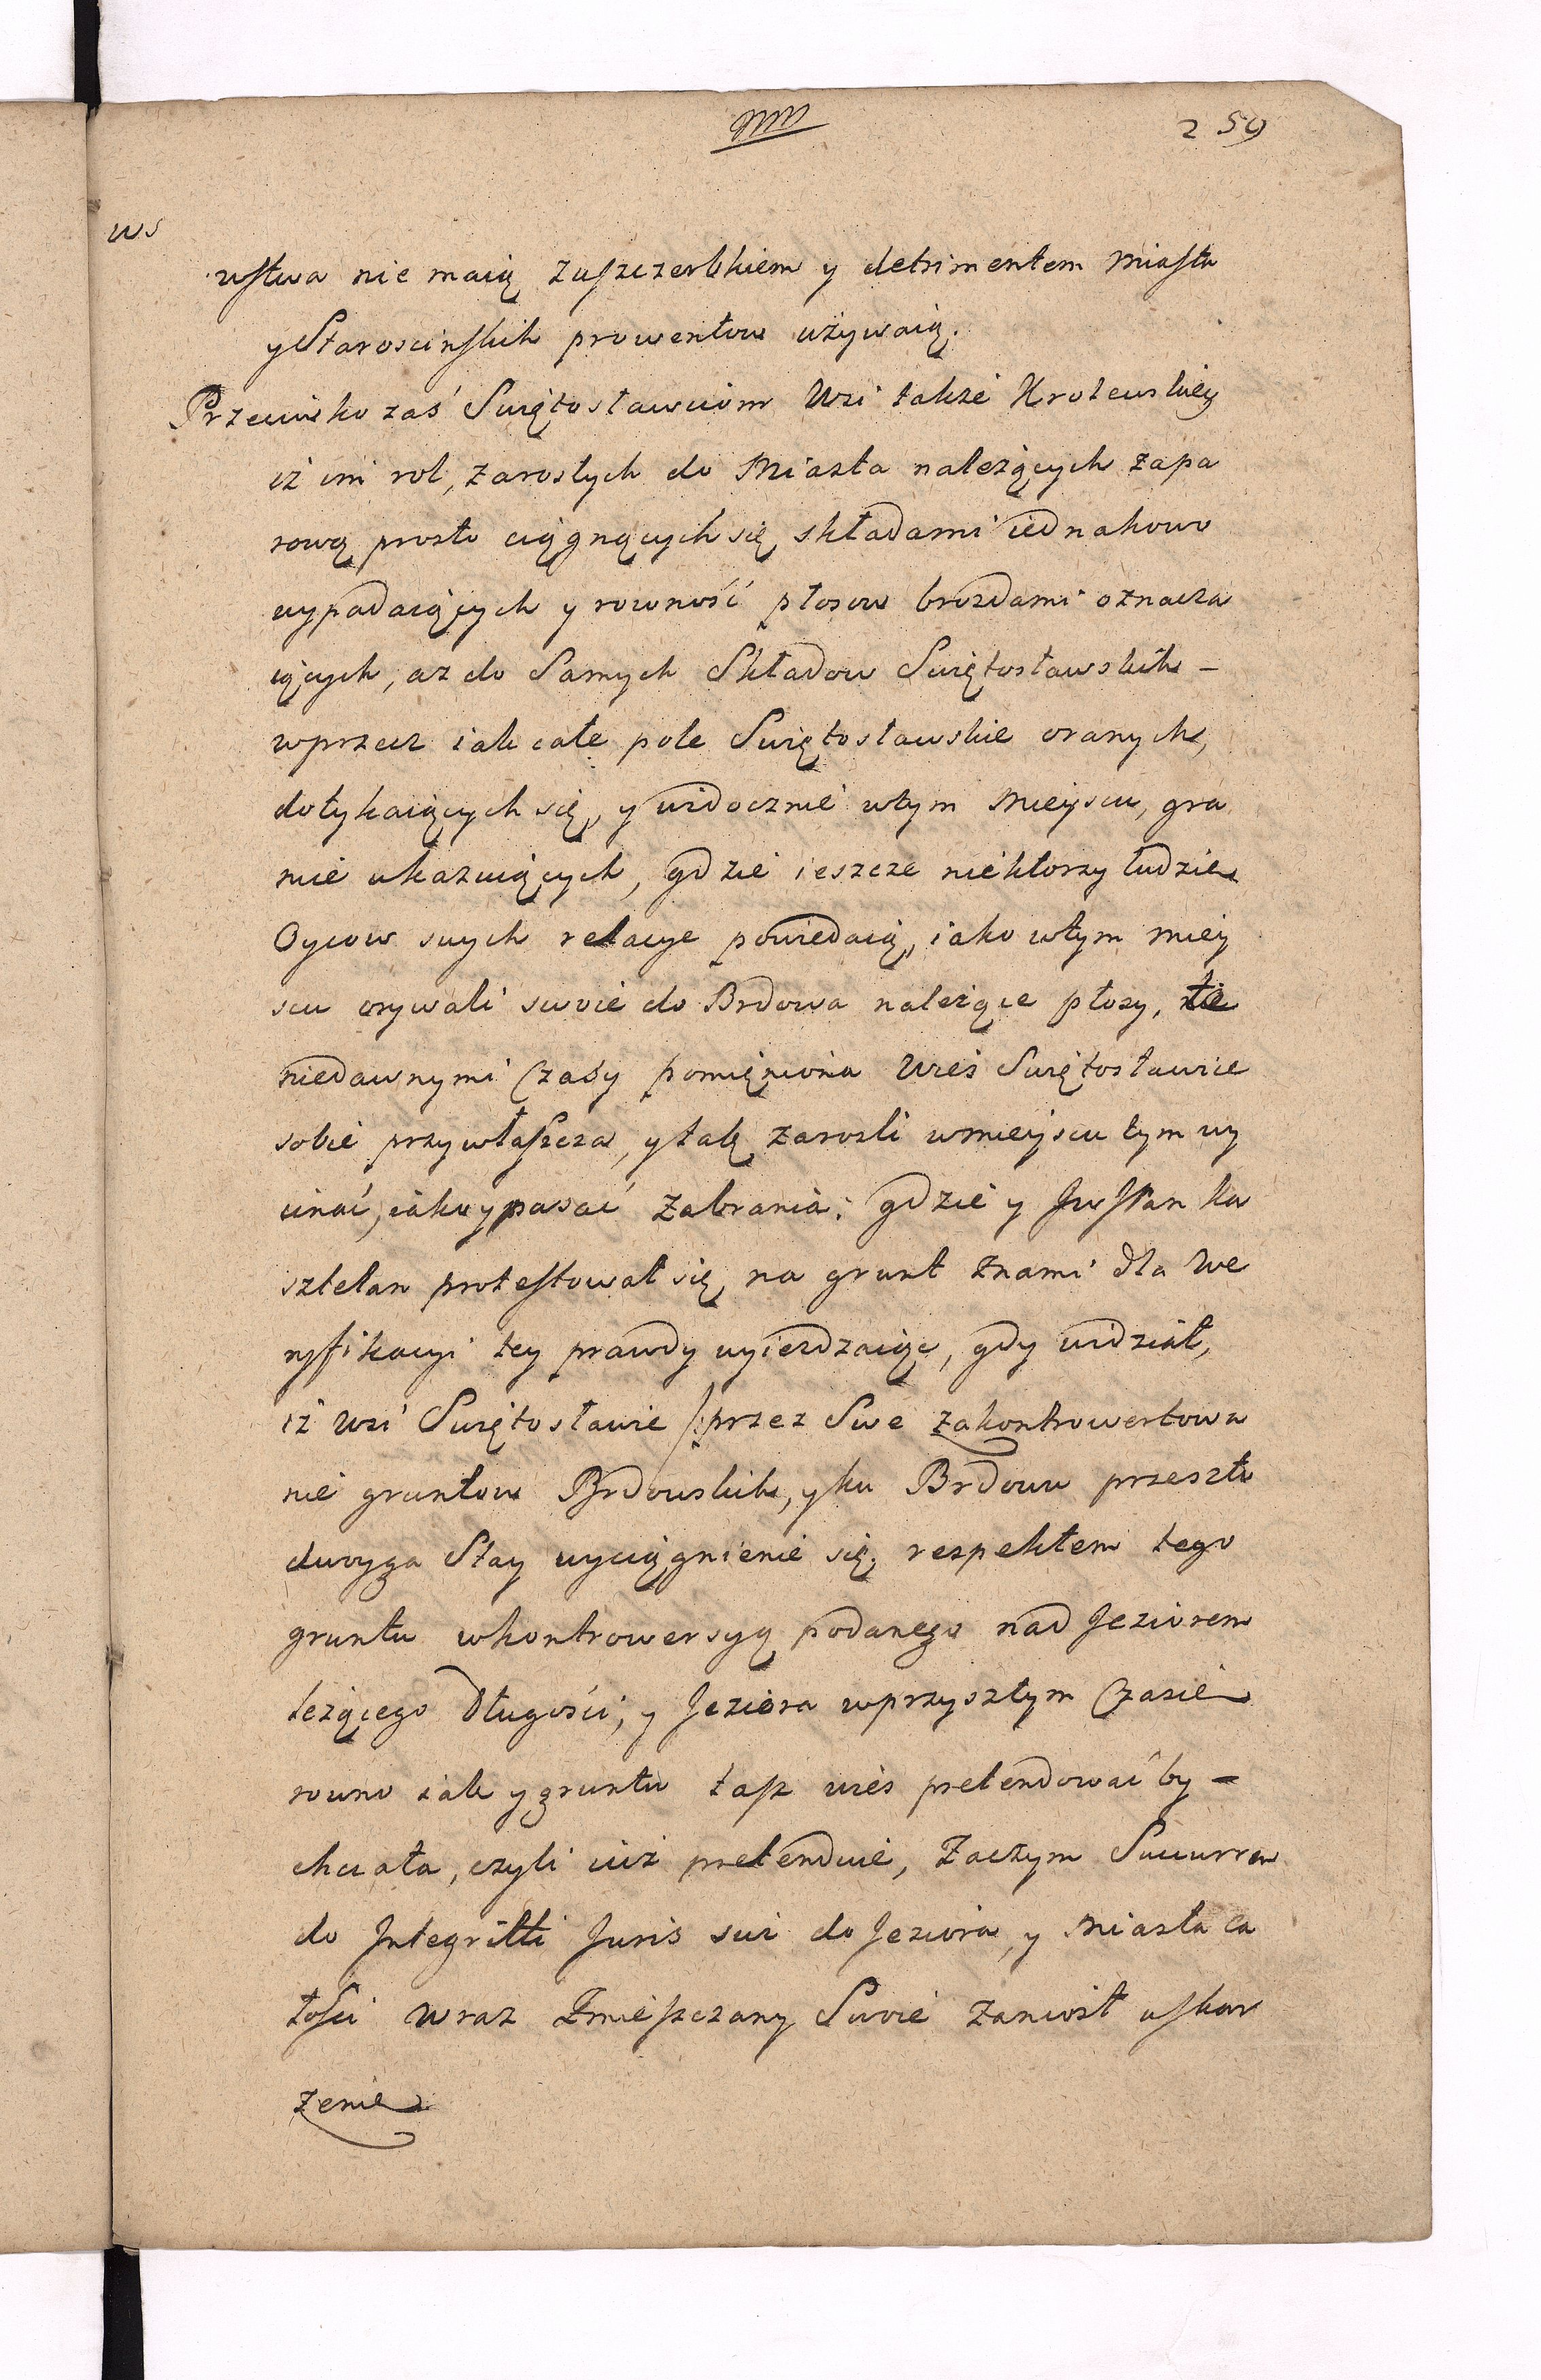 259
ws
wstwa nie maią zuszczerbkiem y detrimentem miasta
y Staroscinskich prowentow używaią.
Przeciwko zaś Swiętosławciom Wsi takżé Krolewskiey
iż im rol, zarosłych do Miasta należących zapa
rową prosto ciągnących się składami iednakowo
wypadaiących y rowność płosow brozdami oznacza
iących, az do Samych Składow Swiętosławskich -
wprzecz iak całe pole Swiętosławskie oranych,
dotykaiących się, y widocznie wtym mieyscu, gra
nie ukazuiących, gdzie ieszcze niektorzy ludzie
Oycow swych relacye powiedaią, iako wtym miey
scu orywali swoie do Brdowa należące płosy, te
niedawnymi Czasy pomięniona Wieś Swiętosławice
sobie przywłaszcza, y tak zarosli wmieyscu tym wy
cinać, iako y pasać zabrania: gdzie y JwJPan ka
sztelan protestował się na grunt znami dla We
ryfikacyi tey prawdy wyierdzaiąc, gdy widział,
iż wsi Swiętosławie /: przez Swe zakontrowertowa
nie gruntow Brdowskich, y ku Brdowu przeszło
dwoyga Stay wyciągnienie się: respektem tego
gruntu wkontrowersyą podanego nad Jeziorem
leżącego Długości; y Jeziora wprzyszłym Czasie
rowno iak y gruntu tasz wieś pretendować by -
chciała, czyli iuż pretenduie, Zaczym Succurren
do Integritti Juris sui do Jeziora, y miasta ca
łości wraz Zmieszczany Swoie zaniosł uskar
żenie